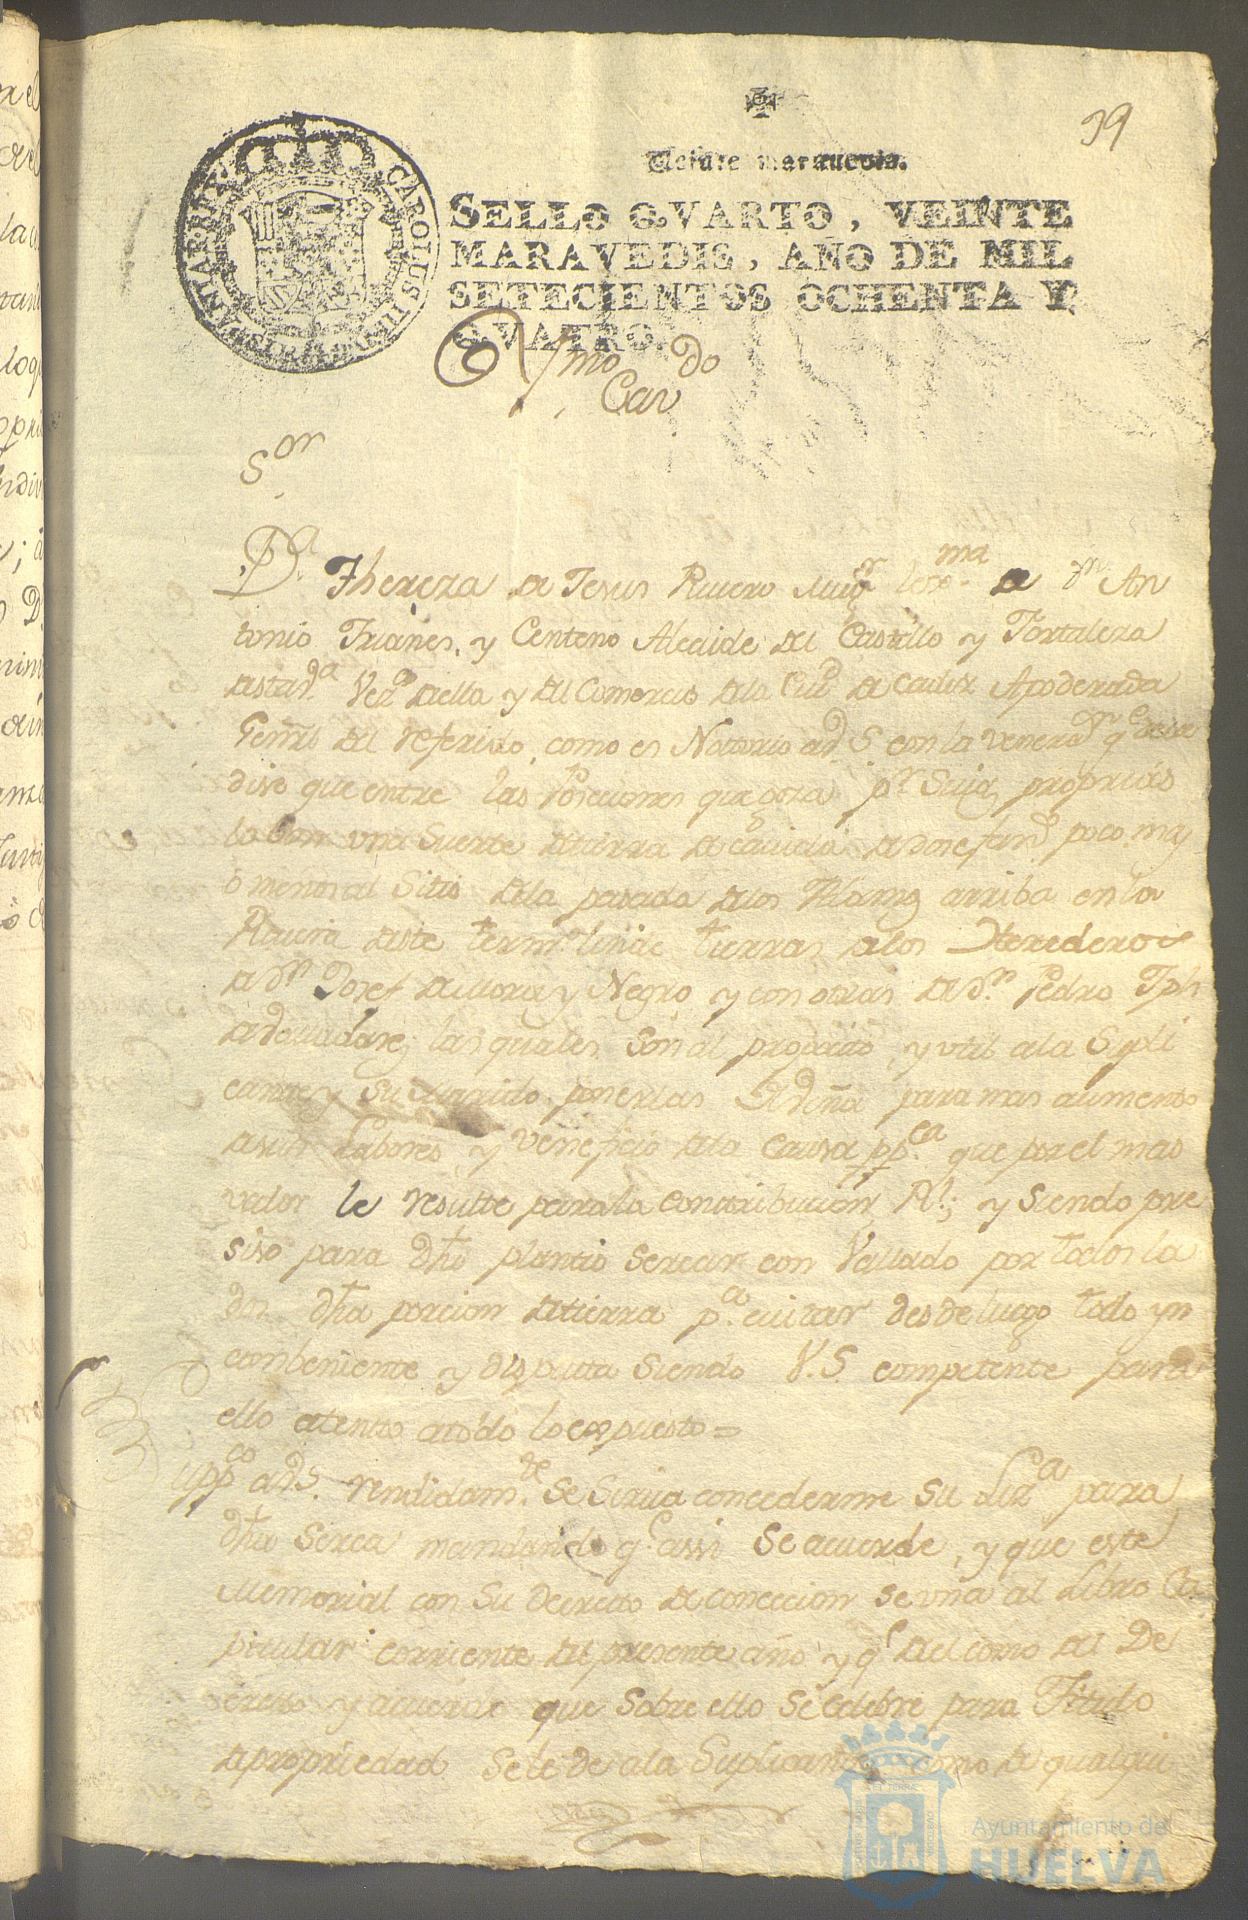 39
Veinte maravedis.
SELLO QVARTO, VEINTE
MARAVEDIS, AÑO DE MIL
SETECIENTOS OCHENTA Y
QVATRO.
CAROLUS III D G HISPANIAR REX
Ylmo Cavdo
Sor
Da. Thereza de Jesus Rivero Muger lexma. de Dn. An
tonio Trianes, y Centeno Alcaide del Castillo y Fortaleza
desta Va Veza della y del Comercio dela Ciud de Cadix Apoderada
Genrl del referido, como es Notorio a V S con la veneran qe deve
dise que entre las Posesiones que goza pr Suias proprias
lo son una Suerte detierra de cavida de dose fans poco mas
o menos al Sitio dela pasada delos Alamos arriba en la
Rivera deste termno linde tierras delos Herederos
de Dn Josef de Mora y Negro y con otras de Dn. Pedro Jph
las quales son al proposito, y util ala Supli
cante y su Marido ponerlas de viña para mas aumento
desus Labores, y Veneficio dela Causa ppca que por el mas
valor le resulte para la contribucion Rl; y siendo pre
siso para dho plantio sercar con Vallado por todos la
dos dha porcion detierra pa. evitar desde luego todo yn
conbeniente y disputa siendo V.S. competente para
ello atento atodo lo expuesto =
Suppco a V S. rendidamte se Sirva concederme su Liza para
dha Serca mandando q. assi se acuerde, y que este
Memorial con Su Decreto de conceccion se una al Libro Ca
pitular corriente del presente año y qe del como del De
creto y acuerdo que sobre ello se celebre para Titulo
depropriedad Sele de ala Suplicante como de qualqui
Ayuntamiento de
HUELVA